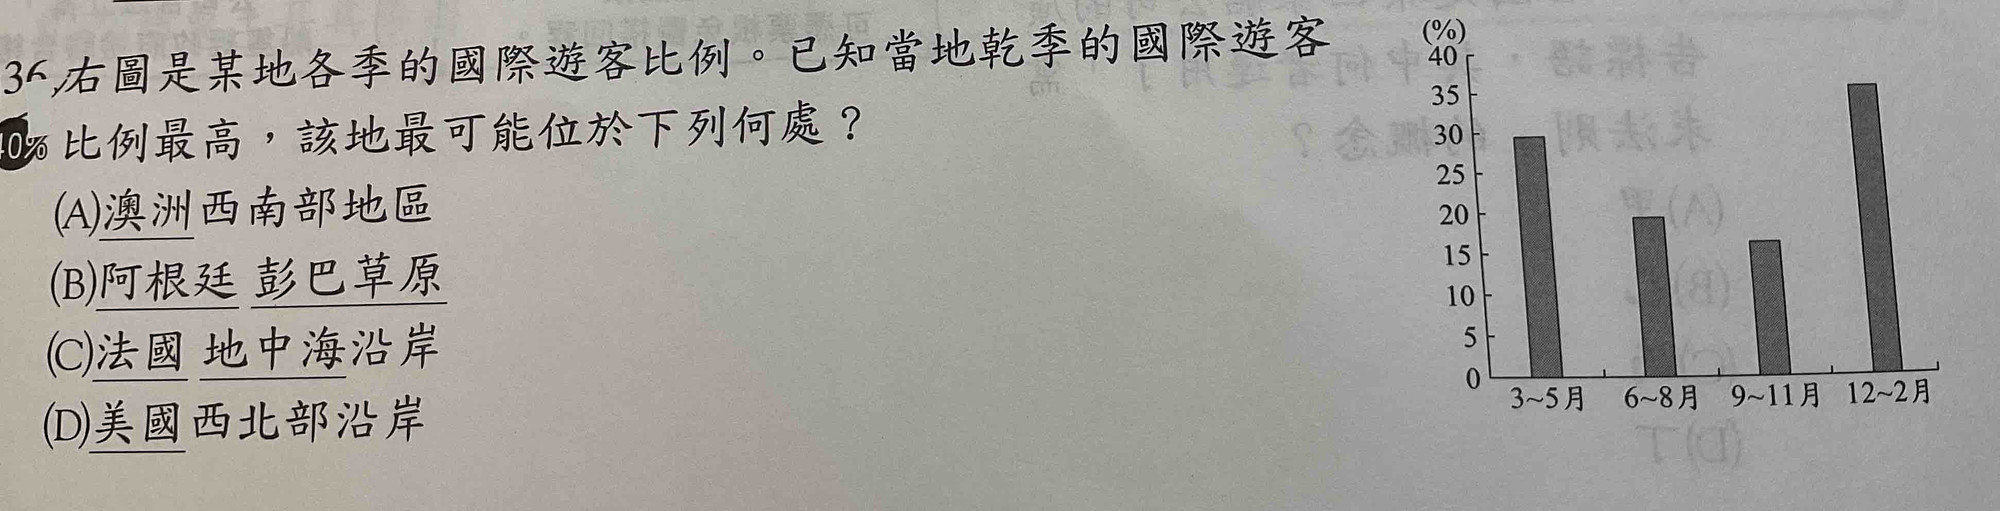 36,右圖是某地各季的國際遊客比例。已知當地乾季的國際遊客
40% 比例最高,該地最可能位於下列何處?
(A)澳洲西南部地區
(B)阿根廷 彭巴草原
(C)法國 地中海沿岸
(D)美國西北部沿岸
(%)
40
35
30
25
20
15
10
5
0
3~5月 6~8月 9~11月 12~2月